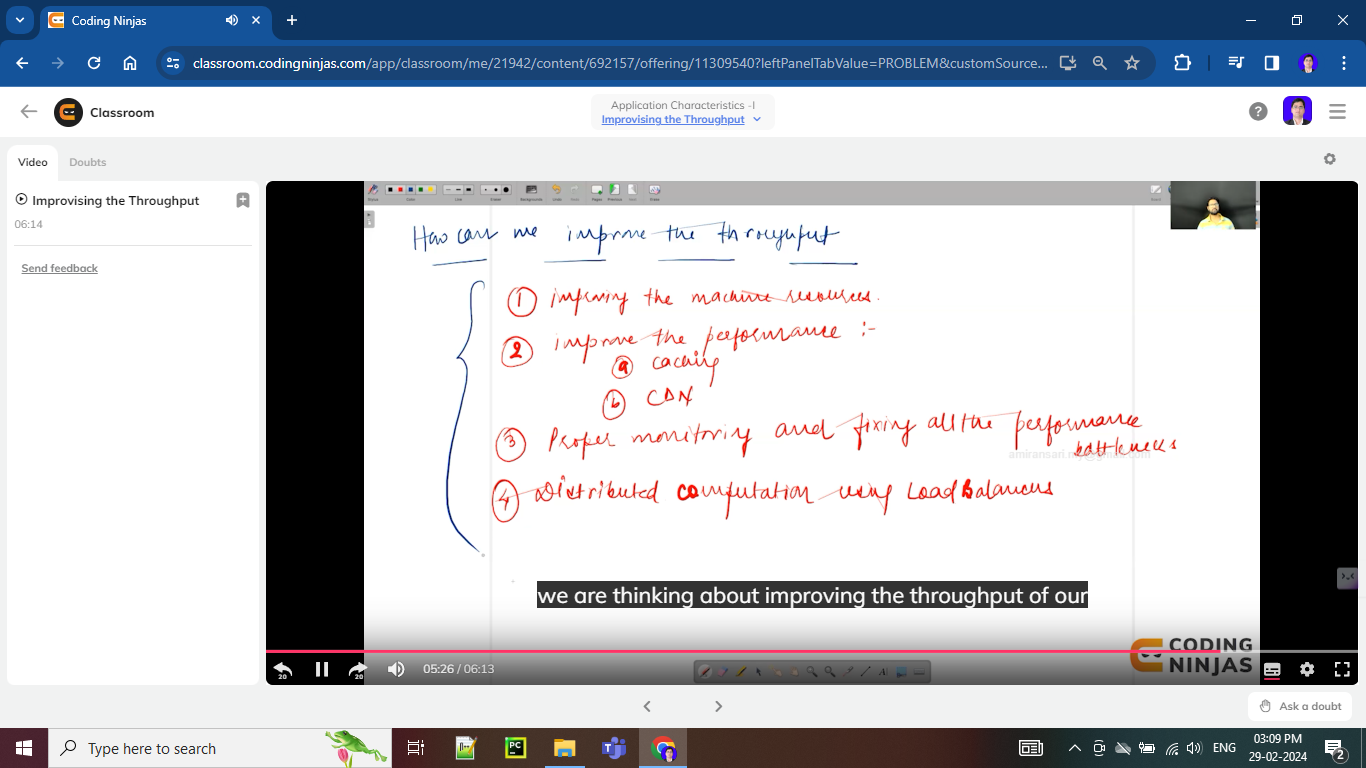 Coding Ninjas
classroom.codingninjas.com/app/classroom/me/21942/content/692157/offering/11309540?leftPanelTabValue=PROBLEM&customSource...
Classroom
Application Characteristics -I
Improvising the Throughput
Video
Doubts
Improvising the Throughput
06:14
Send feedback
How can we improve the throughput
1 improving the machine resources.
2 improve the performance :-
a caching
b CDN
3 Proper monitoring and fixing all the performance
bottlenecks
4 Distributed computation using Load Balancers
we are thinking about improving the throughput of our
CODING
NINJAS
20
20
05:26 / 06:13
Ask a doubt
Type here to search
ENG
03:09 PM
29-02-2024
2